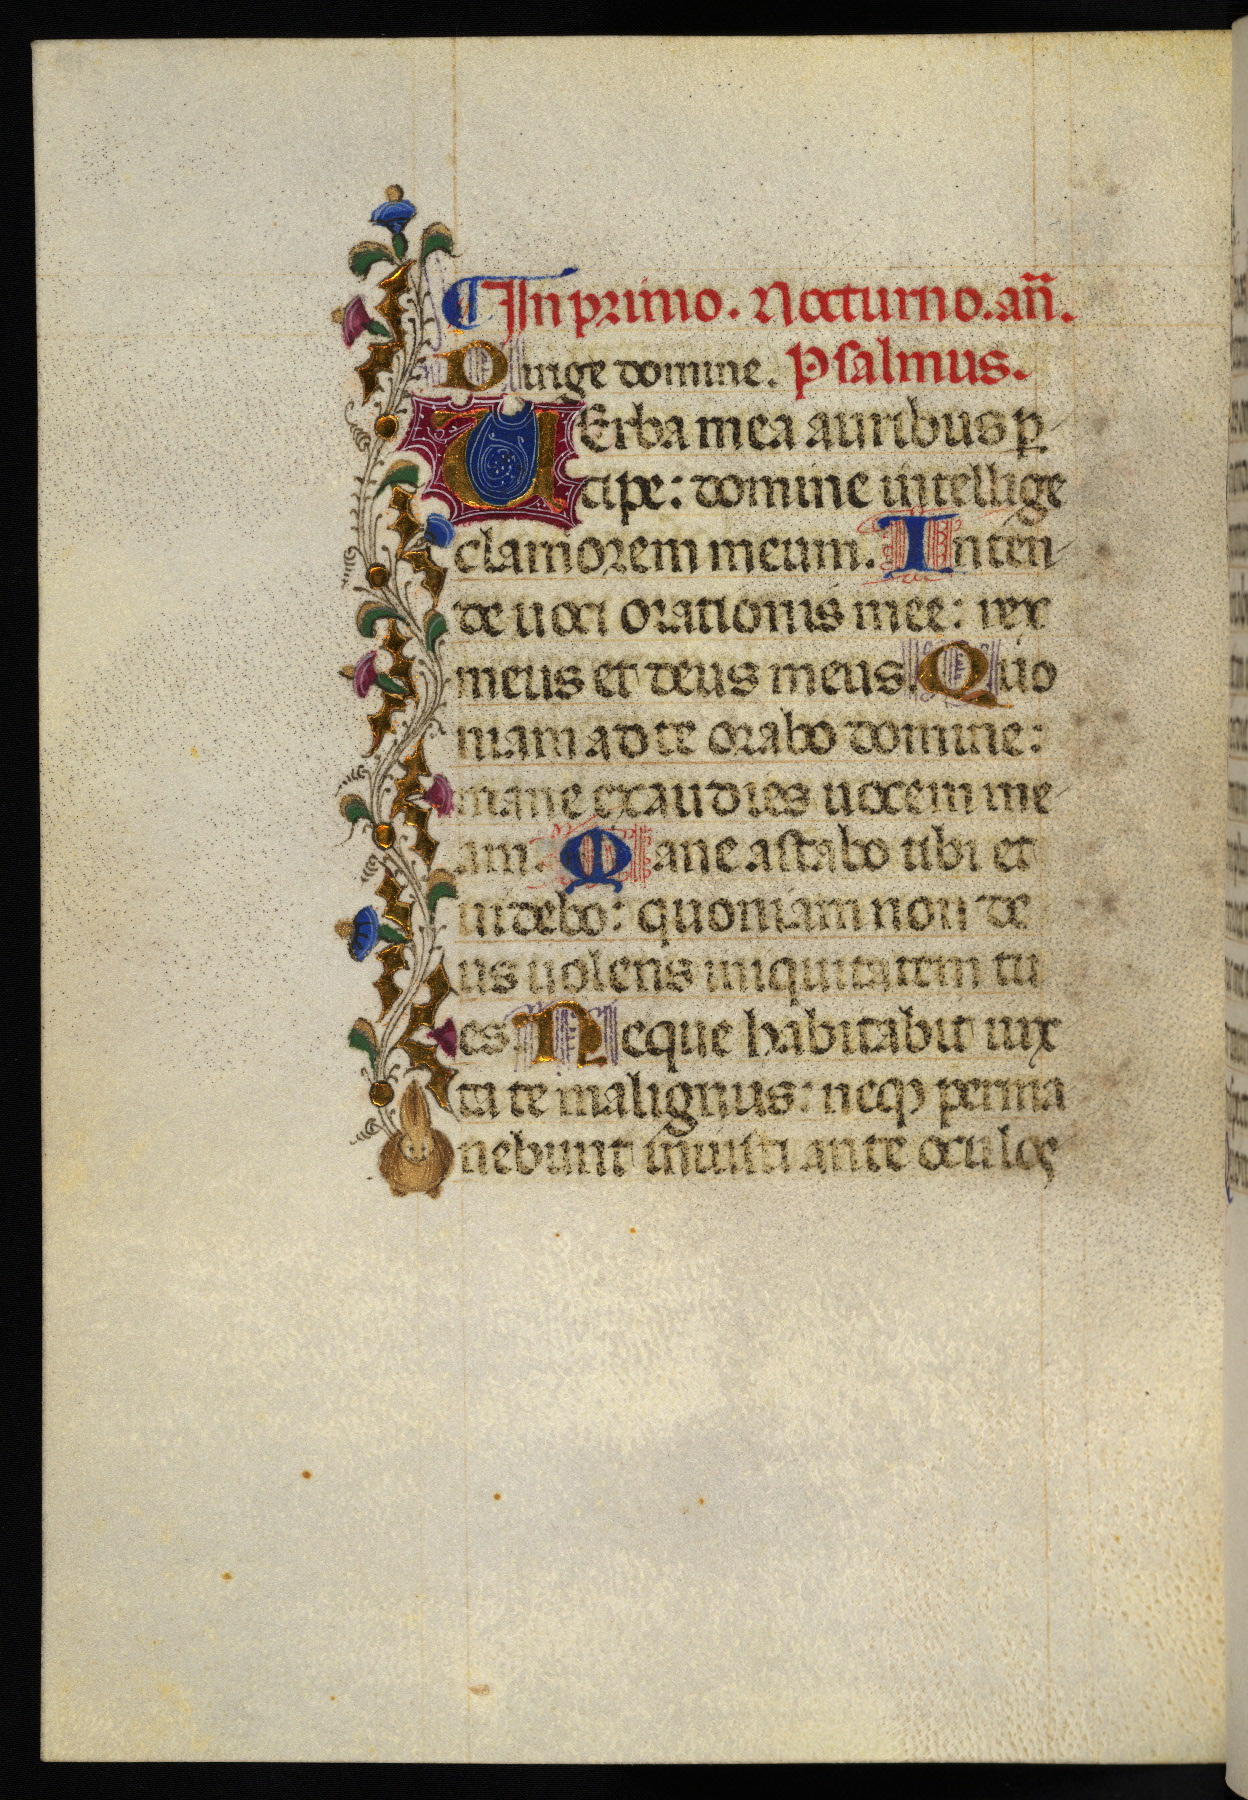 In primo. Nocturno. añ.
Dirige domine. Psalmus.
VErba mea auribus ꝑ
cipe: domine intellige
clamorem meum. Inten
de uoci orationis mee: rex
meus et deus meus. Quo
niam ad te orabo domine:
mane exaudies uocem me
am. Mane astabo tibi et
uidebo: quoniam non de
us uolens iniquitatem tu
es. Neque habitabit iux
ta te malignus: neqꝫ perma
nebunt iniusti ante oculos